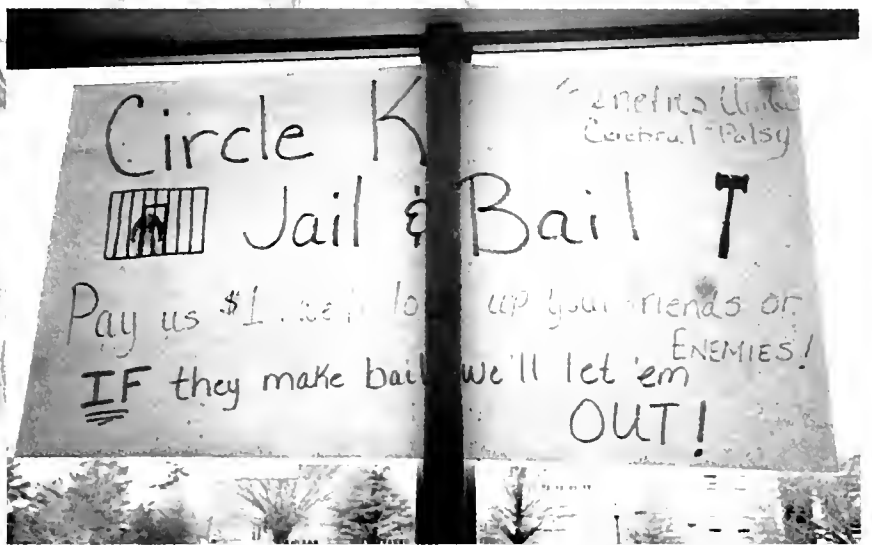 Circle K
United
Cerebral Palsy
Jail & Bail
Pay us $1 up your friends or
ENEMIES!
IF they make bail we'll let 'em
OUT!